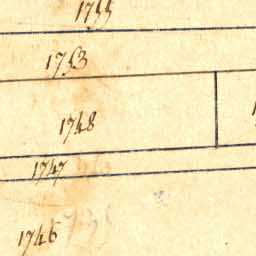 1755
1753
1748
1747
1746